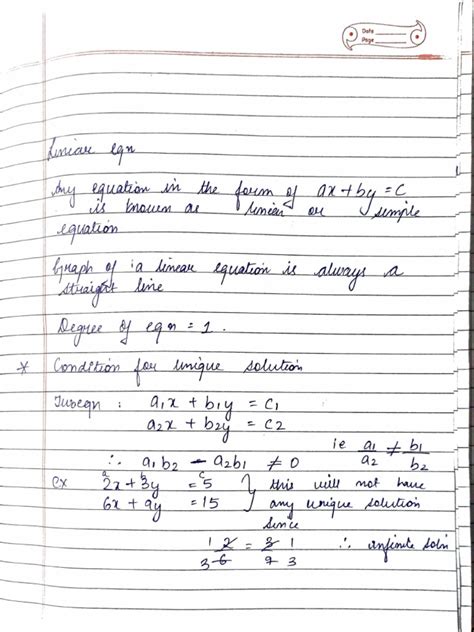 Date
Page
Linear eqn
Any equation in the form of ax + by = c
is known as linear or simple
equation
Graph of a linear equation is always a
straight line
Degree of eqn = 1.
* Condition for unique solution
Two eqn : a₁x + b₁y = c₁
a₂x + b₂y = c₂
ie a₁/a₂ ≠ b₁/b₂
∴ a₁b₂ - a₂b₁ ≠ 0
ex 2x + 3y = 5 } this will not have
6x + 9y = 15 } any unique solution
since
1 2/6 3 = 3/9 1 3 ∴ infinite soln